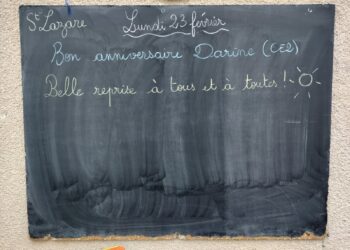 St Lazare
Lundi 23 février
Bon anniversaire Darine (CE2)
Belle reprise à tous et à toutes !